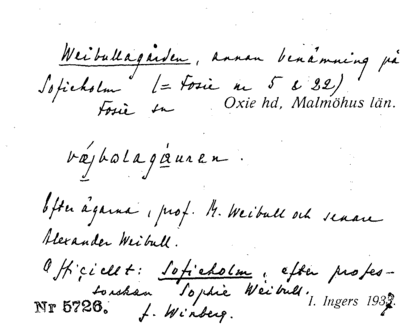 Weibullagården, annan benämning på
Sofieholm (= Fosie nr 5 & 22)
Fosie sn Oxie hd, Malmöhus län.
vǽjbʊlagáuren.
Efter ägarna, prof. M. Weibull och senare
Alexander Weibull.
Officiellt: Sofieholm, efter profes-
sorskan Sophie Weibull.
Nr 5726. f. Winberg. I. Ingers 1937.